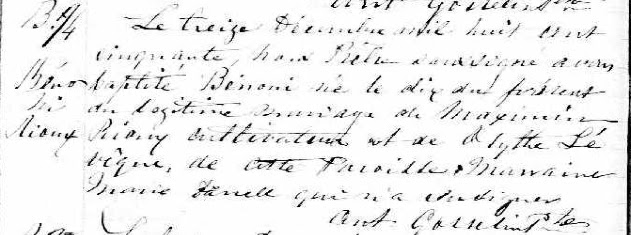 Ant Gosselin Ptre
B. 74 Le treize Décembre mil huit cent
cinquante, nous Prêtre soussigné avons
Béno baptisé Bénoni né le dix du présent
ni du légitime mariage de Maximin
Rioux Rioux cultivateur et de Olythe Lé
vêque, de cette Paroisse. Marraine
Marie qui n'a su signer
Ant Gosselin Ptre